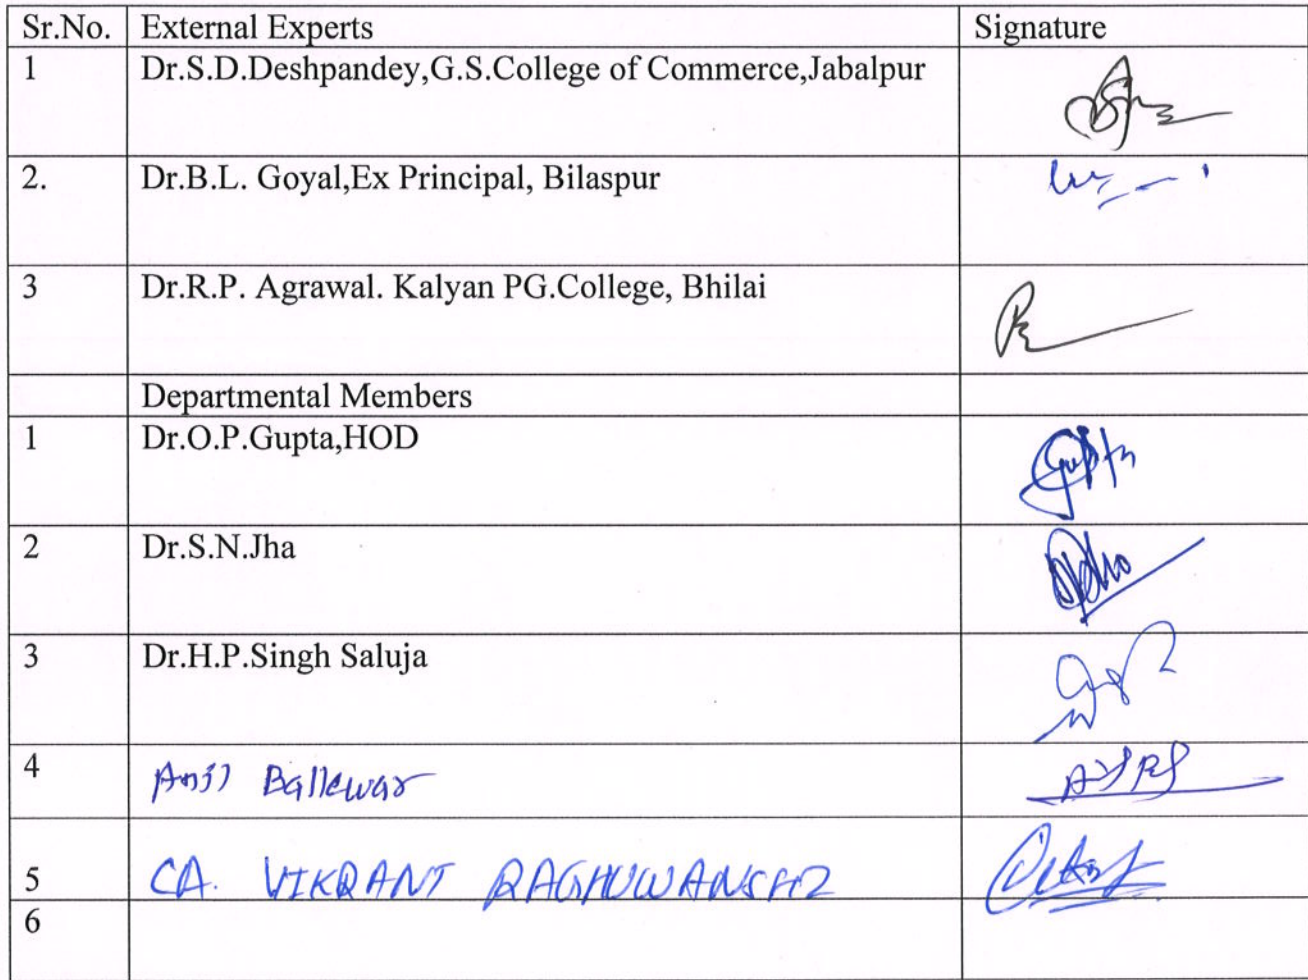 Sr.No. External Experts Signature
1 Dr.S.D.Deshpandey,G.S.College of Commerce,Jabalpur
2. Dr.B.L. Goyal,Ex Principal, Bilaspur
3 Dr.R.P. Agrawal. Kalyan PG.College, Bhilai
Departmental Members
1 Dr.O.P.Gupta,HOD Gupta
2 Dr.S.N.Jha
3 Dr.H.P.Singh Saluja
4 Anil Ballewar
5 CA. VIKRANT RAGHUWANSHI
6